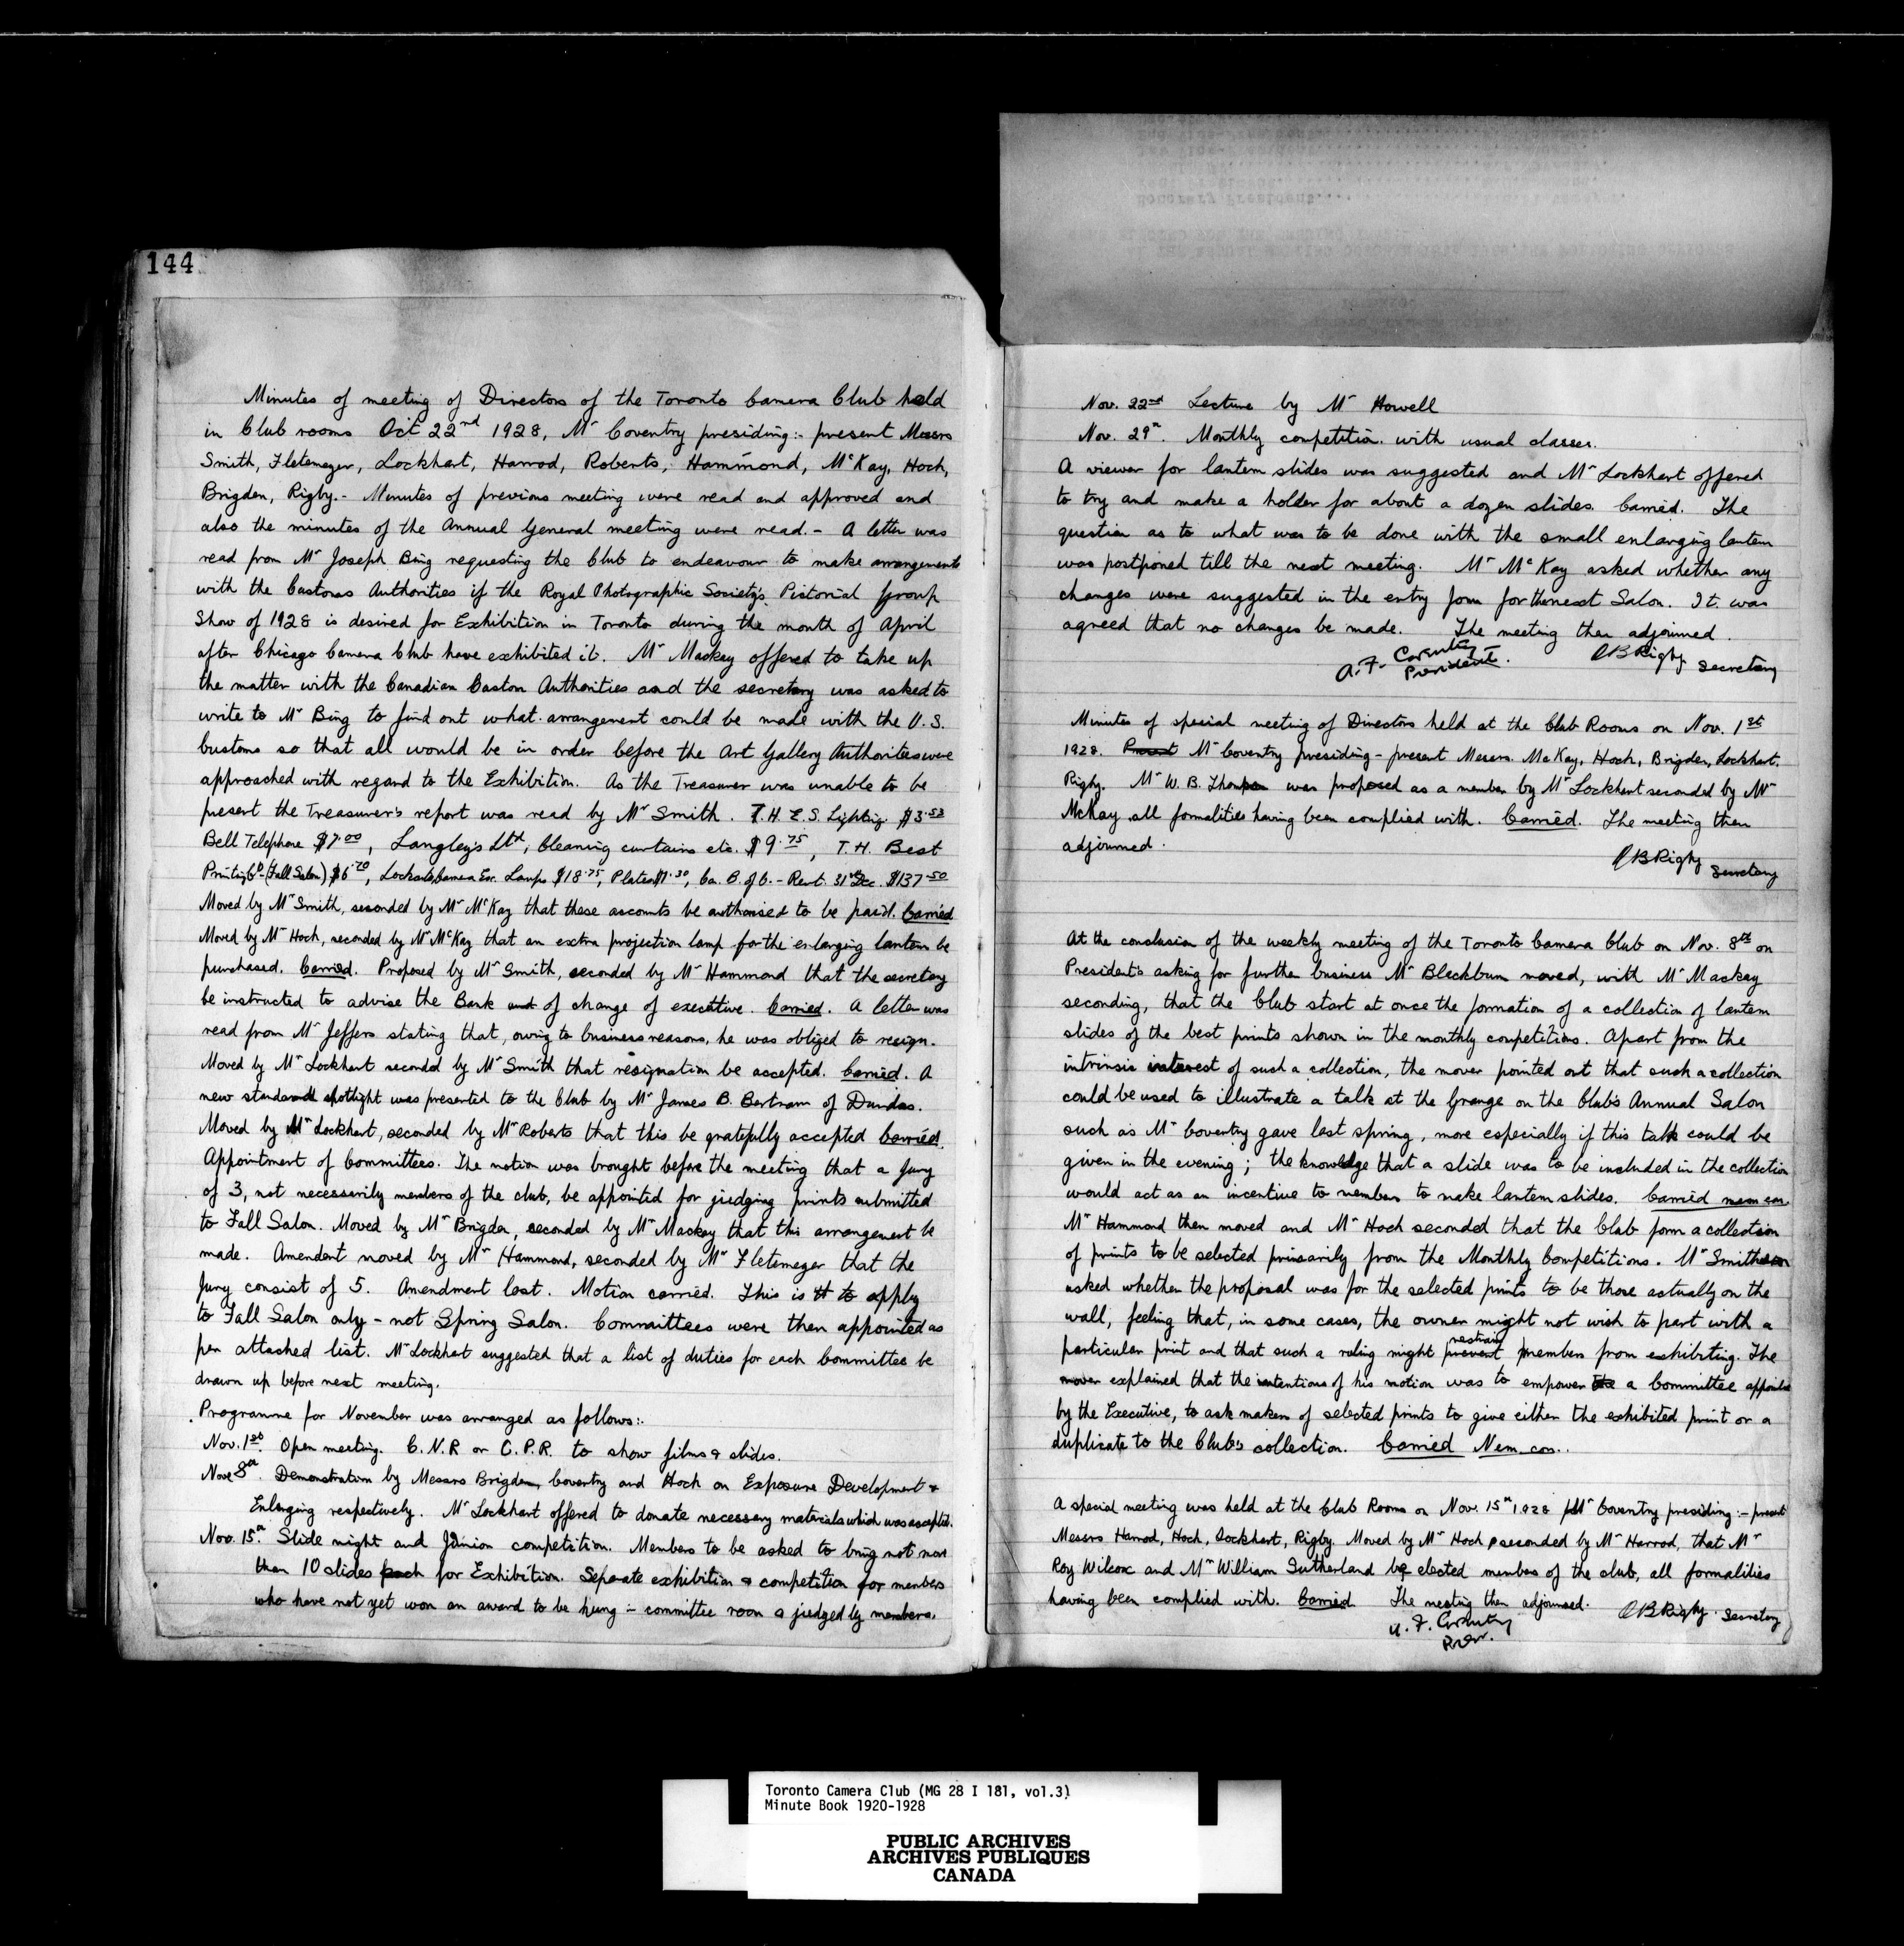 144
Minutes of meeting of Directors of the Toronto Camera Club held
in Club rooms Oct 22nd 1928, Mr Coventry presiding:- present Messrs
Smith, Fletemeyer, Lockhart, Harrod, Roberts, Hammond, McKay, Hoch,
Brigden, Rigby.- Minutes of previous meeting were read and approved and
also the minutes of the Annual General meeting were read.- A letter was
read from Mr Joseph Bing requesting the Club to endeavour to make arrangements
with the Customs Authorities if the Royal Photographic Society's Pictorial Group
Show of 1928 is desired for Exhibition in Toronto during the month of April
after Chicago Camera Club have exhibited it. Mr Mackay offered to take up
the matter with the Canadian Custom Authorities and the secretary was asked to
write to Mr Bing to find out what arrangement could be made with the U.S.
customs so that all would be in order before the Art Gallery Authorities were
approached with regard to the Exhibition. As the Treasurer was unable to be
present the Treasurer's report was read by Mr Smith. T.H.E.S. Lighting $3.53
Bell Telephone $7.00, Langley's Ltd, Cleaning curtains etc. $9.75, T.H. Best
Printing Co (Fall Salon) $6.70, Lockhart's Camera Ex. Lamps $18.75, Plates $1.30, Ca. B. of C. - Rent. 31st Dec. $137.50
Moved by Mr Smith, seconded by Mr McKay that these accounts be authorised to be paid. Carried
Moved by Mr Hoch, seconded by Mr McKay that an extra projection lamp for the enlarging lantern be
purchased. Carried. Proposed by Mr Smith, seconded by Mr Hammond that the secretary
be instructed to advise the Bank and of change of executive. Carried. A letter was
read from Mr Jeffers stating that, owing to business reasons, he was obliged to resign.
Moved by Mr Lockhart seconded by Mr Smith that resignation be accepted. Carried. A
new standard spotlight was presented to the Club by Mr James B. Bertram of Dundas.
Moved by Mr Lockhart, seconded by Mr Roberts that this be gratefully accepted Carried.
Appointment of Committees. The motion was brought before the meeting that a Jury
of 3, not necessarily members of the club, be appointed for judging prints submitted
to Fall Salon. Moved by Mr Brigden, seconded by Mr Mackay that this arrangement be
made. Amendent moved by Mr Hammond, seconded by Mr Fletemeyer that the
Jury consist of 5. Amendment lost. Motion carried. This is to apply
to Fall Salon only - not Spring Salon. Committees were then appointed as
per attached list. Mr Lockhart suggested that a list of duties for each Committee be
drawn up before next meeting.
Programme for November was arranged as follows:-
Nov. 1st. Open meeting. C.N.R or C.P.R. to show films & slides.
Nov 8th. Demonstration by Messrs Brigden, Coventry and Hoch on Exposure Development &
Enlarging respectively. Mr Lockhart offered to donate necessary materials which was accepted.
Nov. 15th. Slide night and Junior competition. Members to be asked to bring not more
than 10 slides each for Exhibition. Separate exhibition & competition for members
who have not yet won an award to be hung in committee room & judged by members.
Nov. 22nd Lecture by Mr Howell
Nov. 29th. Monthly competition with usual classes.
A viewer for lantern slides was suggested and Mr Lockhart offered
to try and make a holder for about a dozen slides. Carried. The
question as to what was to be done with the small enlarging lantern
was postponed till the next meeting. Mr McKay asked whether any
changes were suggested in the entry form for the next Salon. It was
agreed that no changes be made. The meeting then adjourned.
A.F. Coventry President. Rigby secretary
Minutes of special meeting of Directors held at the Club Rooms on Nov. 1st
1928. Present Mr Coventry presiding - present Messrs. McKay, Hoch, Brigden, Lockhart,
Rigby. Mr W.B. Thompson was proposed as a member by Mr Lockhart seconded by Mr
McKay all formalities having been complied with. Carried. The meeting then
adjourned.
Rigby secretary
At the conclusion of the weekly meeting of the Toronto Camera Club on Nov. 8th on
President's asking for further business Mr Blackburn moved, with Mr Mackay
seconding, that the Club start at once the formation of a collection of lantern
slides of the best prints shown in the monthly competitions. Apart from the
intrinsic interest of such a collection, the mover pointed out that such a collection
could be used to illustrate a talk at the Grange on the Club's Annual Salon
such as Mr Coventry gave last spring, more especially if this talk could be
given in the evening; the knowledge that a slide was to be included in the collection
would act as an incentive to members to make lantern slides. Carried nem con.
Mr Hammond then moved and Mr Hoch seconded that the Club form a collection
of prints to be selected primarily from the Monthly Competitions. Mr Smith
asked whether the proposal was for the selected prints to be those actually on the
wall, feeling that, in some cases, the owner might not wish to part with a
particular print and that such a ruling might prevent restrain members from exhibiting. The
mover explained that the intentions of his motion was to empower the a Committee appointed
by the Executive, to ask makers of selected prints to give either the exhibited print or a
duplicate to the Club's collection. Carried Nem. con..
A special meeting was held at the Club Rooms on Nov. 15th 1928 Mr Coventry presiding:- present
Messrs Harrod, Hoch, Lockhart, Rigby. Moved by Mr Hoch, seconded by Mr Harrod, that Mr
Roy Wilcox and Mr William Sutherland be elected members of the club, all formalities
having been complied with. Carried The meeting then adjourned. Rigby. Secretary
A.F. Coventry
Pres.
Toronto Camera Club (MG 28 I 181, vol.3)
Minute Book 1920-1928
PUBLIC ARCHIVES
ARCHIVES PUBLIQUES
CANADA